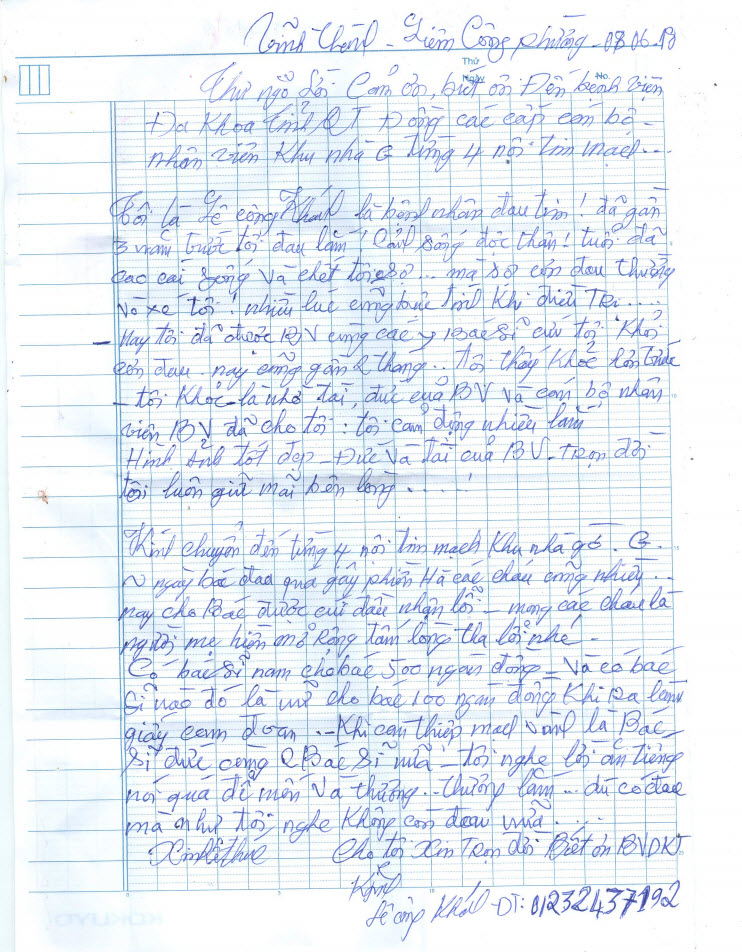 Vĩnh Thành - Liêm Công Phường - 08.06.18
Thứ
Ngày
No.
Thư ngõ Lời Cảm ơn, biết ơn Đến bệnh viện
Đa Khoa tỉnh QT Đồng các cấp cán bộ -
nhân viên Khu nhà G tầng 4 nội tim mạch...
Tôi là Lê công Khánh là bệnh nhân đau tim! đã gần
3 năm trước tôi đau lắm! Cảnh sống độc thân! tuổi đã
cao cái sống và chết tôi sợ... mà sợ cơn đau thường
vò xé tôi! nhiều lúc cũng bực tính Khi điều Trị....
- Nay tôi đã được BV cùng các y Bác sĩ cứu tôi Khỏi
cơn đau. nay cũng gần 2 tháng.. Tôi thấy Khỏe hơn trước
- tôi Khỏe là nhờ tài, đức của BV và cán bộ nhân
viên BV đã cho tôi: tôi cảm động nhiều lắm
Hình ảnh tốt đẹp - Đức và tài của BV - Trọn đời
tôi luôn giữ mãi bên lòng.....!
Kính chuyển đến tầng 4 nội tim mạch Khu nhà G.
ngày bác đau quá gây phiền Hà các cháu cũng nhiều..
nay cho Bác được cúi đầu nhận lỗi - mong các cháu là
người mẹ hiền mở Rộng tấm lòng tha lỗi nhé -
Có bác sĩ nam cho bác 500 ngàn đồng - Và có bác
sĩ nào đó là nữ cho bác 100 ngàn đồng Khi ra làm
giấy cam đoan.. - Khi can thiệp mạch vành là Bác
Sĩ đức cùng 2 Bác Sĩ nữa - tôi nghe lời ăn tiếng
nói quá dễ mến Và thương.. thương lắm... dù có đau
mà như tôi nghe Không còn đau nữa....
Xin lỗi thư Cho tôi Xin Trọn đời Biết ơn BVĐKT
Khánh
Lê công Khánh - ĐT: 01232437192
KOKUYO